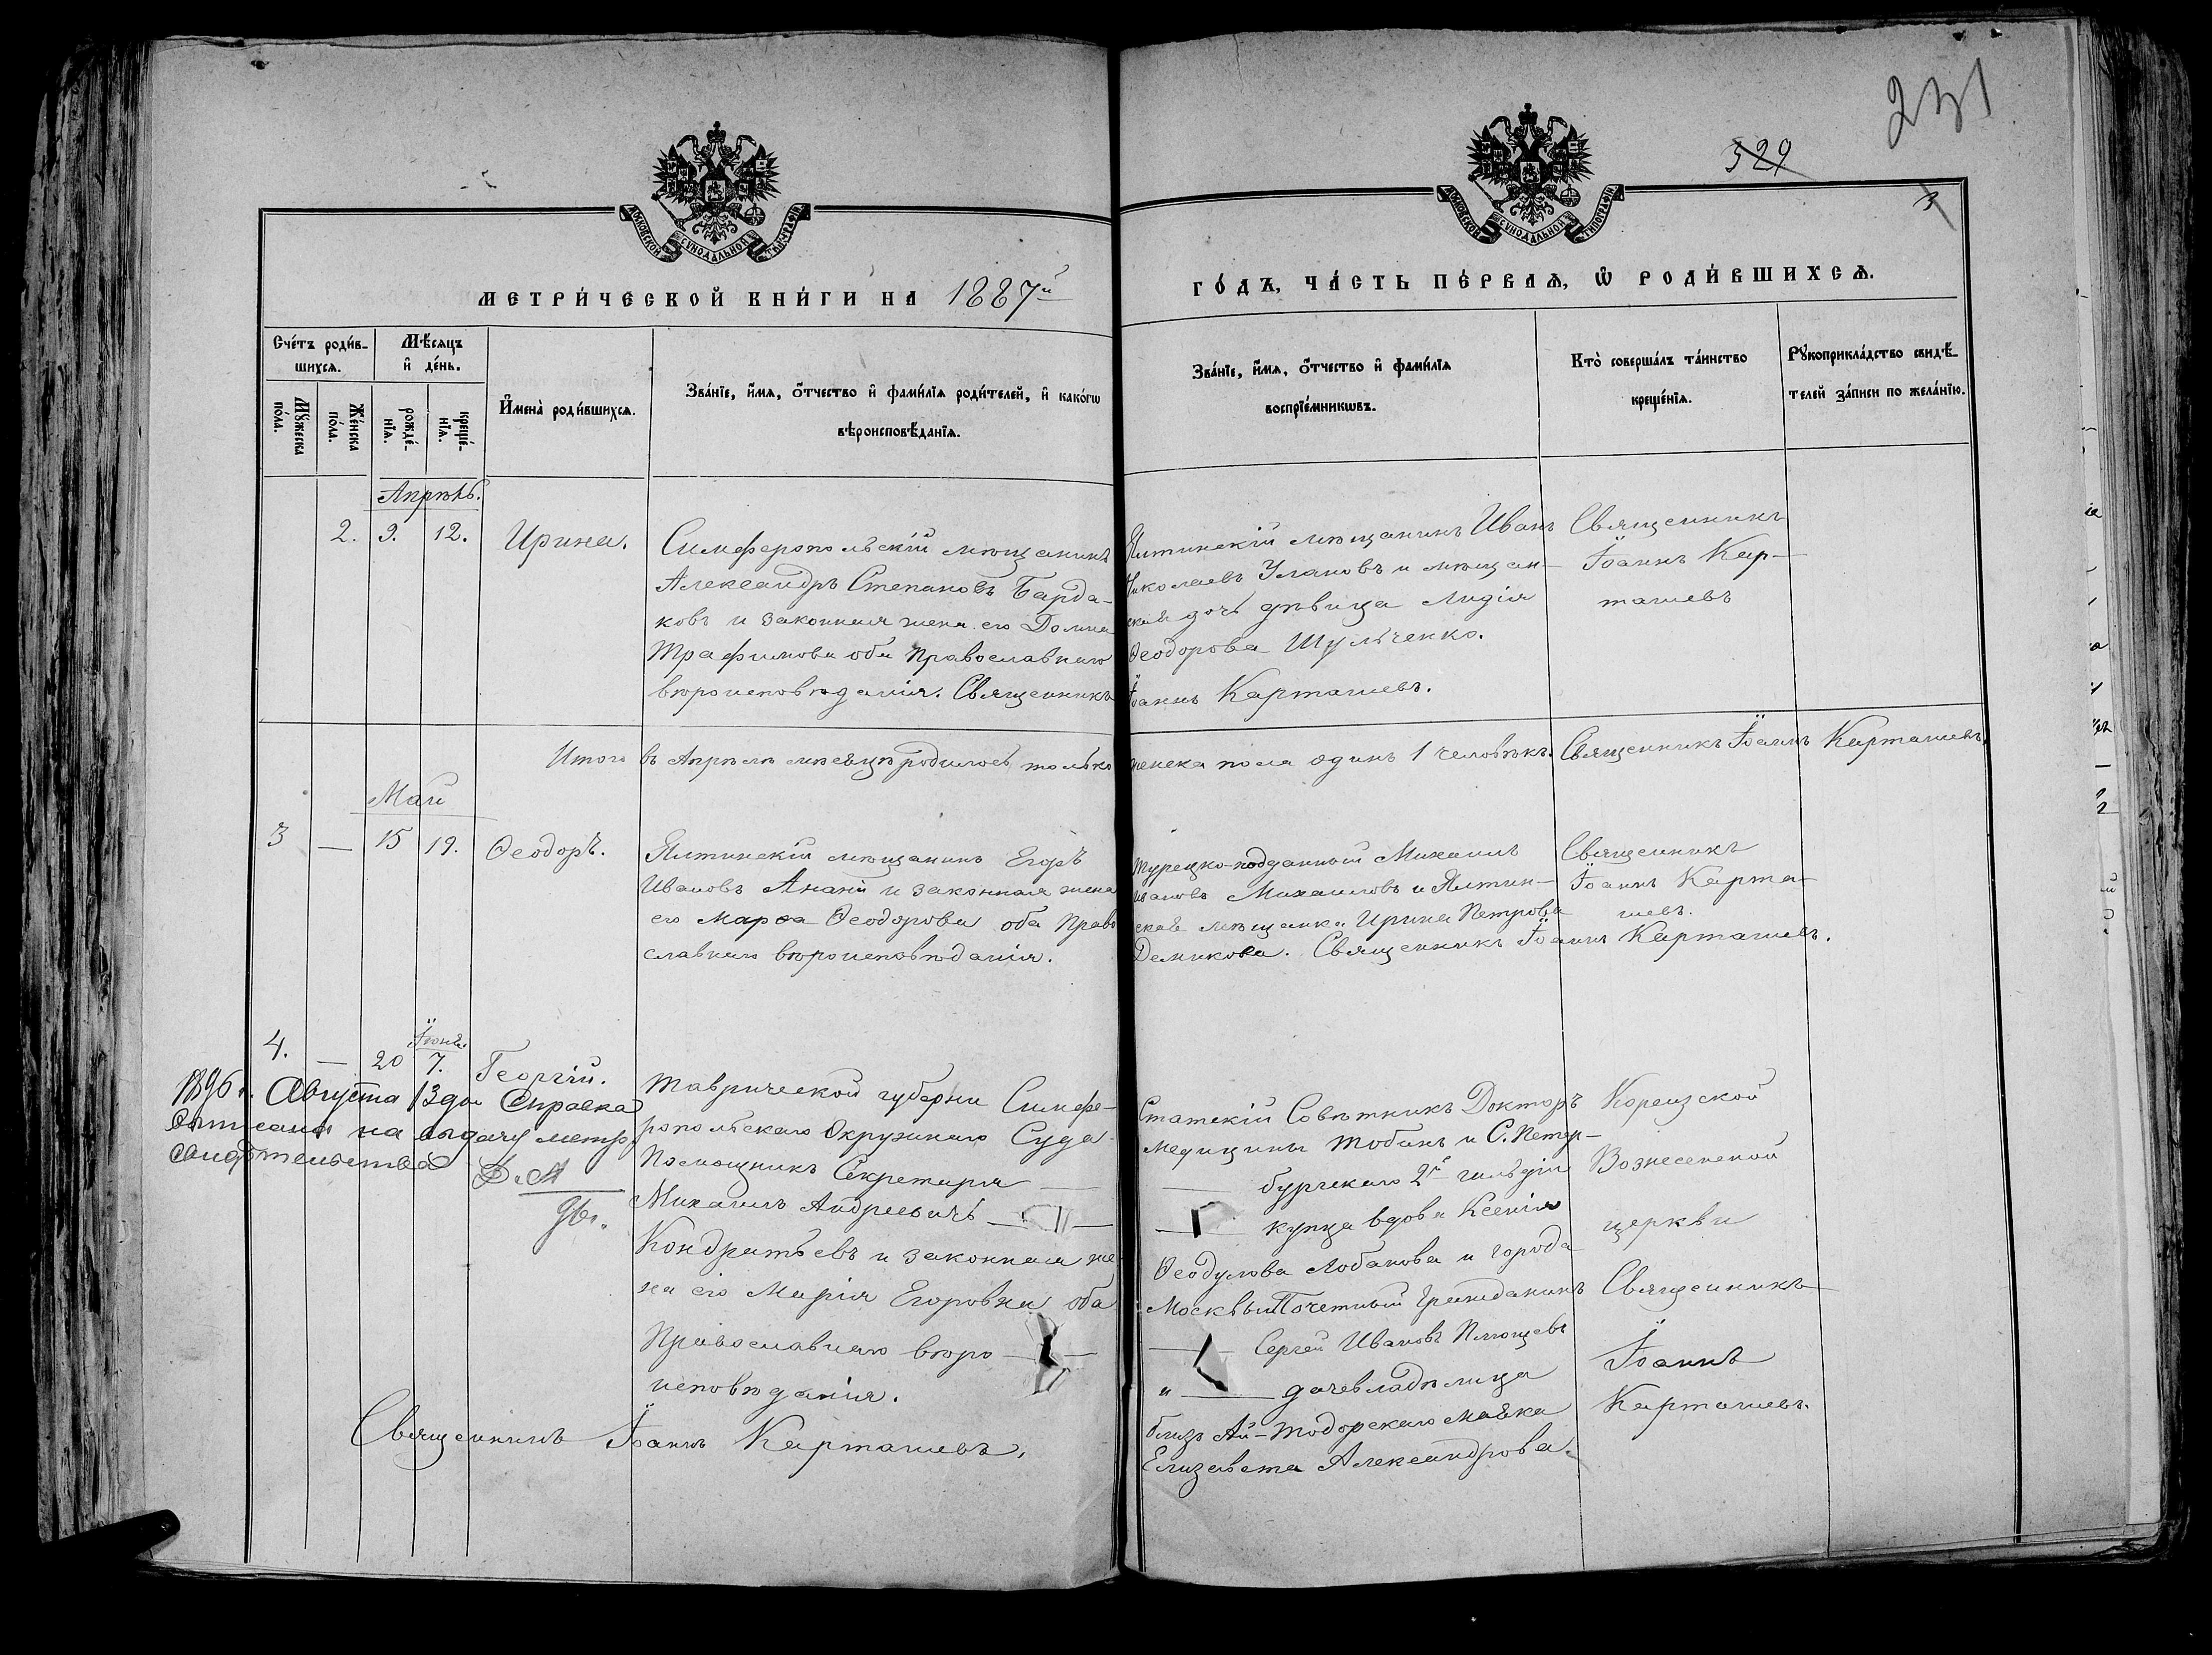 231
529
3
МОСКОВСКОЙ СѴНОДАЛЬНОЙ ТИПОГРАФІИ
МОСКОВСКОЙ СѴНОДАЛЬНОЙ ТИПОГРАФІИ
МЕТРИ́ЧЕСКОЙ КНИ́ГИ НА 1887й
ГО́ДЪ, ЧА́СТЬ ПЕ́РВАѦ, Ѽ РОДИ́ВШИХСѦ.
Сче́тъ роди́в-
шихся.
Мѣ́сяцъ
и҆ де́нь.
Мꙋ́жеска
по́ла.
Же́нска
по́ла.
рожде́-
нїѧ.
креще́-
нїѧ.
И҆мена̀ роди́вшихсѧ.
Зва́нїе, и҆́мѧ, ѻ҆́тчество и҆ фами́лїѧ роди́телей, и҆ како́гѡ
вѣроисповѣ́данїѧ.
Зва́нїе, и҆́мѧ, ѻ҆́тчество и҆ фами́лїѧ
воспрїе́мникѡвъ.
Кто̀ соверша́лъ та́инство
креще́нїѧ.
Рꙋкоприкла́дство свидѣ́-
телей за́писи по жела́нїю.
Апрѣль.
2. 9. 12. Ирина.
Симферопольскій мѣщанинъ
Александръ Степановъ Барда-
ковъ и законная жена его Домна
Трафимова оба Православнаго
вѣроисповѣданія. Священникъ
Ялтинскій мѣщанинъ Иванъ
Николаевъ Улановъ и мѣщан-
ская дочь дѣвица Лидія
Ѳеодорова Шульченко.
Іоаннъ Карташевъ.
Священникъ
Іоаннъ Кар-
ташевъ
Итого въ Апрѣлѣ мѣсяцѣ родилось только женска пола одинъ 1 человѣкъ. Священникъ Іоаннъ Карташевъ.
Май
3 — 15 19. Ѳеодоръ.
Ялтинскій мѣщанинъ Егоръ
Ивановъ Анани и законная жена
его Марѳа Ѳеодорова оба Право
славнаго вѣроисповѣданія.
Турецко-подданный Михаилъ
Ивановъ Михаиловъ и Ялтин-
ская мѣщанка Ирина Петрова
Демикова. Священникъ Іоаннъ Карташевъ.
Священникъ
Іоаннъ Карта-
шевъ.
Іюня
4. — 20 7. Георгій.
1896 г. Августа 13 дня Справка
выписана на выдачу метр.
свидѣтельства
96 г.
Таврической губерніи Симфе-
ропольскаго Окружнаго Суда
Помощникъ Секретаря
Михаилъ Андреевичъ
Кондратьевъ и законная же-
на его Марія Егоровна оба
Православнаго вѣро
исповѣданія.
Священникъ Іоаннъ Карташевъ.
Статскій Совѣтникъ Докторъ
Медицины Тобинъ и С. Петер-
бургскаго 2й гильдіи
купца вдова Ксенія
Ѳеодулова Лобанова и города
Москвы Почетный Гражданинъ
Сергей Ивановъ
и дачевладѣлица
близъ Ай-Тодорскаго маяка
Елизавета Александрова.
Кореизской
Вознесенской
церкви
Священникъ
Іоаннъ
Карташевъ.